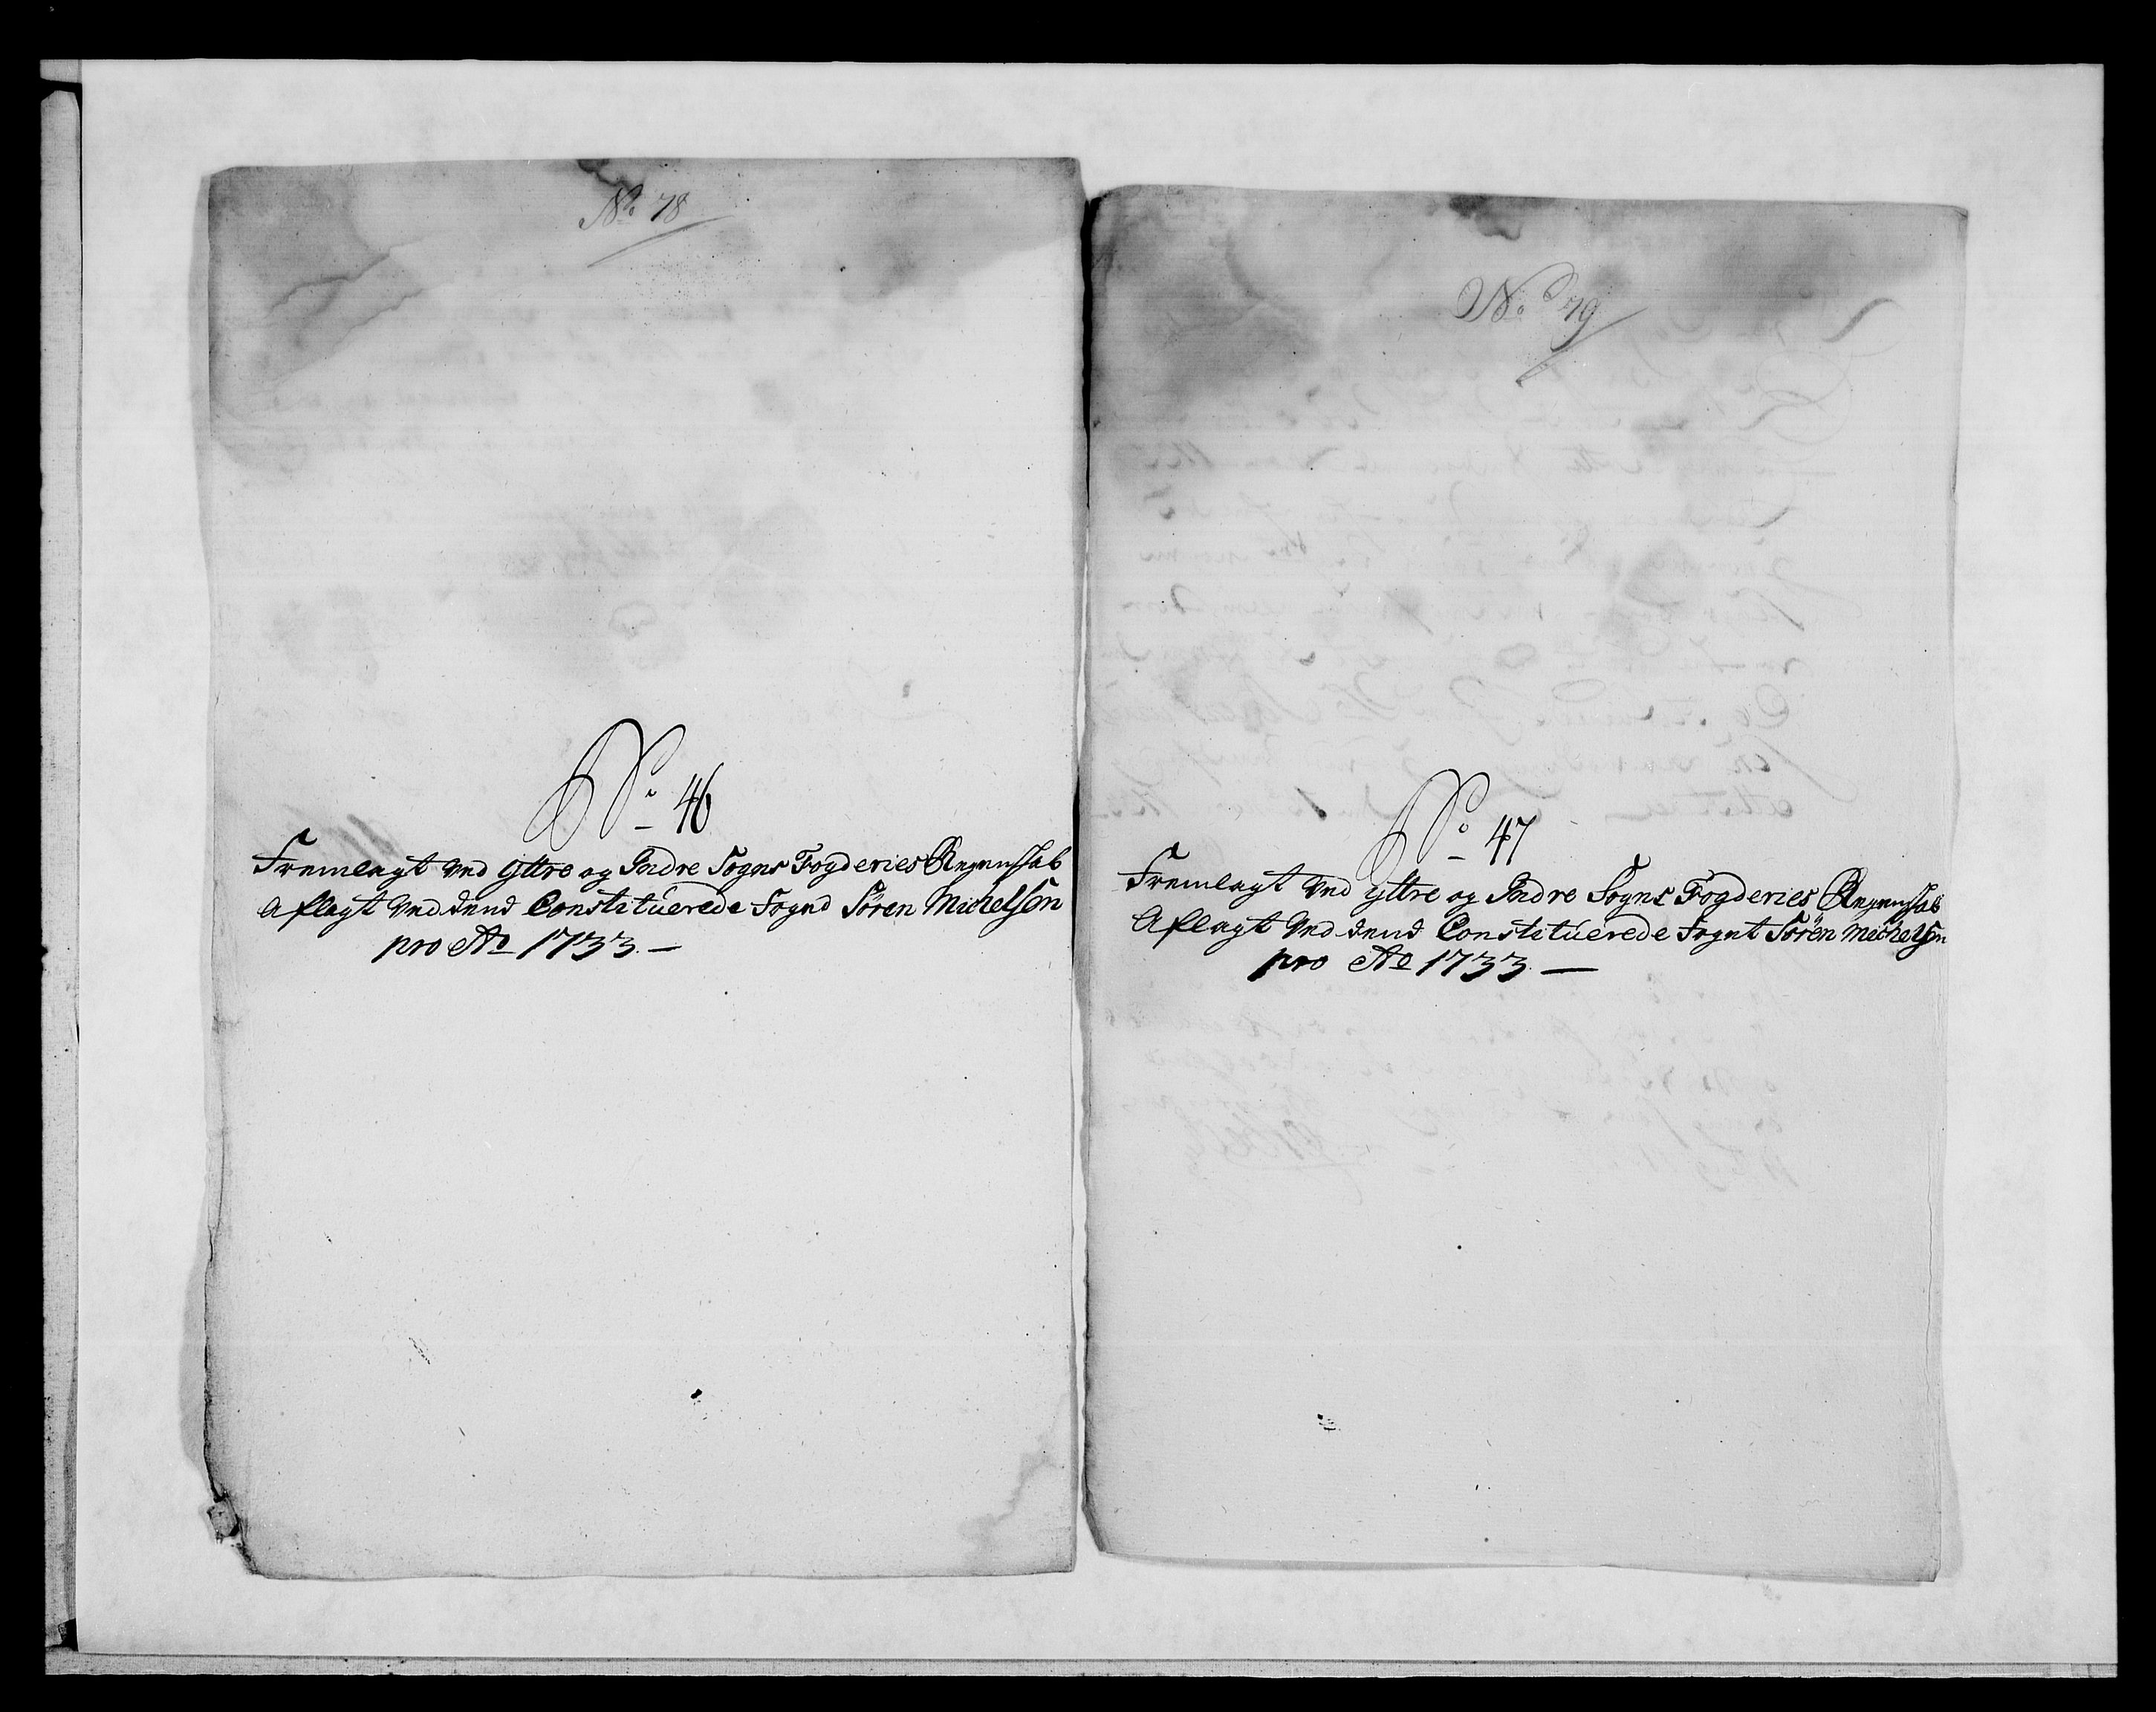 No 78
No 46
Fremlagt ved Yttre og Indre Sogns Fogderies Regenskab
Aflagt Ved dend Constituerede Fogd Sören Michelsen
pro Ao 1733. —
No 79
No 47
Fremlagt Ved Yttre og Indre Sogns Fogderies Regenskab
Aflagt Ved dend Constituerede Fogt Sören Michelsen
pro Ao 1733. —